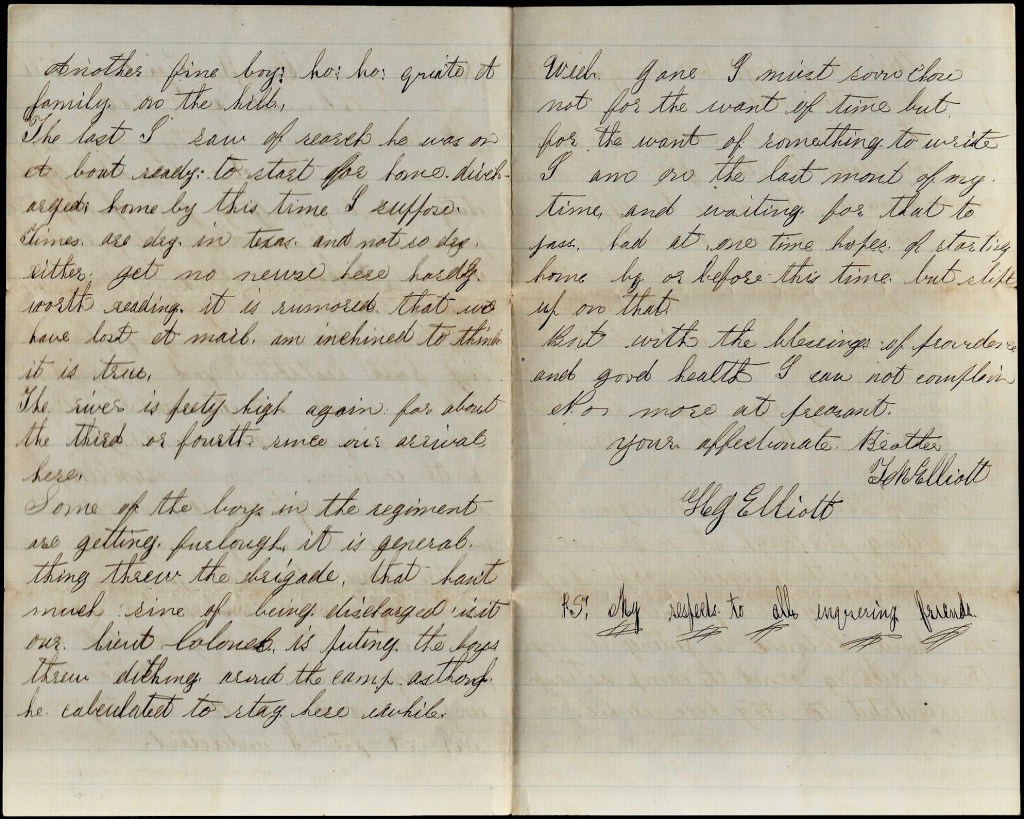 Another fine boy; ho; ho; griate A
family on the hill,
The last I saw of reach he was on
A boat ready; to start for home disch-
arged; home by this time I suppose.
Times are dry in texas and not so dry
either. get no newse here hardly
worth reading. it is rumored that we
have lost A mail. am inchined to think
it is true.
The river is prety high again for about
the third or fourth since our arrival
here.
Some of the boys in the regiment
are getting furlough. it is general
thing threw the brigade. that hant
much sine of being discharged is it
our Lieut Colonel is puting the boys
threw ditching arind the camp as though
he calculated to stay here awhile.
Well Jane I must soon close
not for the want of time but
for the want of something to write
I am on the last mont of my
time, and waiting for that to
pass. had at one time hopes of starting
home by or before this time. but slipt
up on that.
But with the blessings of providence
and good health I can not complain
No more at presant.
Your affectionate Brother
Elliott
HG Elliott
P.S. My respects to all enquering friends